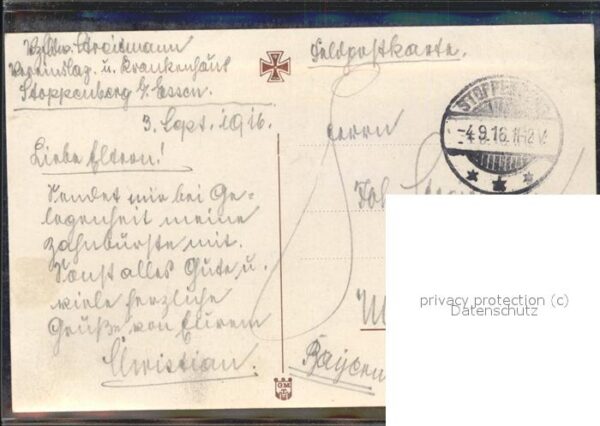 Vereinslaz. u. Krankenhaus
Stoppenberg b/ Essen.
3. Sept. 1916.
Liebe Eltern!
Sendet mir bei Ge-
legenheit meine
Zahnbürste mit.
Sonst alles Gute u.
viele herzliche
Grüße von Eurem
Christian.
Feldpostkarte.
Herrn
Joh.
Bayern
-4.9.16.11-12V.
privacy protection (c)
Datenschutz